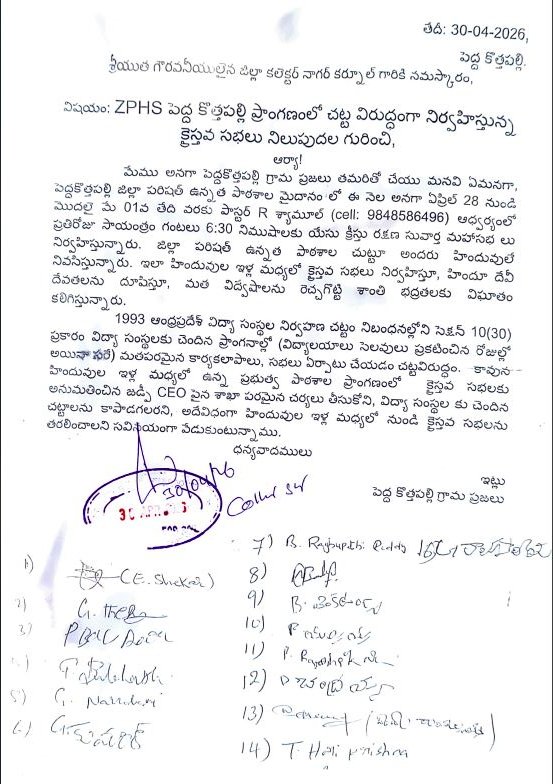 తేది: 30-04-2026,
పెద్ద కొత్తపల్లి.
శ్రీయుత గౌరవనీయులైన జిల్లా కలెక్టర్ నాగర్ కర్నూల్ గారికి నమస్కారం,
విషయం: ZPHS పెద్ద కొత్తపల్లి ప్రాంగణంలో చట్ట విరుద్ధంగా నిర్వహిస్తున్న
క్రైస్తవ సభలు నిలుపుదల గురించి,
ఆర్యా!
మేము అనగా పెద్దకొత్తపల్లి గ్రామ ప్రజలు తమరితో చేయు మనవి ఏమనగా,
పెద్దకొత్తపల్లి జిల్లా పరిషత్ ఉన్నత పాఠశాల మైదానం లో ఈ నెల అనగా ఏప్రిల్ 28 నుండి
మొదలై మే 01వ తేది వరకు పాస్టర్ R శ్యామూల్ (cell: 9848586496) ఆధ్వర్యంలో
ప్రతిరోజూ సాయంత్రం గంటలు 6:30 నిముషాలకు యేసు క్రీస్తు రక్షణ సువార్త మహాసభ లు
నిర్వహిస్తున్నారు. జిల్లా పరిషత్ ఉన్నత పాఠశాల చుట్టూ అందరు హిందువులే
నివసిస్తున్నారు. ఇలా హిందువుల ఇళ్ల మధ్యలో క్రైస్తవ సభలు నిర్వహిస్తూ, హిందూ దేవీ
దేవతలను దూషిస్తూ, మత విద్వేషాలను రెచ్చగొట్టి శాంతి భద్రతలకు విఘాతం
కలిగిస్తున్నారు.
1993 ఆంధ్రప్రదేశ్ విద్యా సంస్థల నిర్వహణ చట్టం నిబంధనల్లోని సెక్షన్ 10(30)
ప్రకారం విద్యా సంస్థలకు చెందిన ప్రాంగణాల్లో (విద్యాలయాలు సెలవులు ప్రకటించిన రోజుల్లో
అయినా సరే) మతపరమైన కార్యకలాపాలు, సభలు ఏర్పాటు చేయడం చట్టవిరుద్ధం. కావున
హిందువుల ఇళ్ల మధ్యలో ఉన్న ప్రభుత్వ పాఠశాల ప్రాంగణంలో క్రైస్తవ సభలకు
అనుమతించిన జడ్పీ CEO పైన శాఖా పరమైన చర్యలు తీసుకోని, విద్యా సంస్థల కు చెందిన
చట్టాలను కాపాడగలరని, అదేవిధంగా హిందువుల ఇళ్ల మధ్యలో నుండి క్రైస్తవ సభలను
తరలించాలని సవినయంగా వేడుకుంటున్నాము.
ధన్యవాదములు
ఇట్లు
పెద్ద కొత్తపల్లి గ్రామ ప్రజలు
30/04/26
30 APR
1)
(E. Shekar)
2) G.
3)
5) G.
6) G.
7) B. Reddy
8)
9) B.
10) P
11) P.
12) P చంద్రయ్య
13)
14) T. Hari Krishna